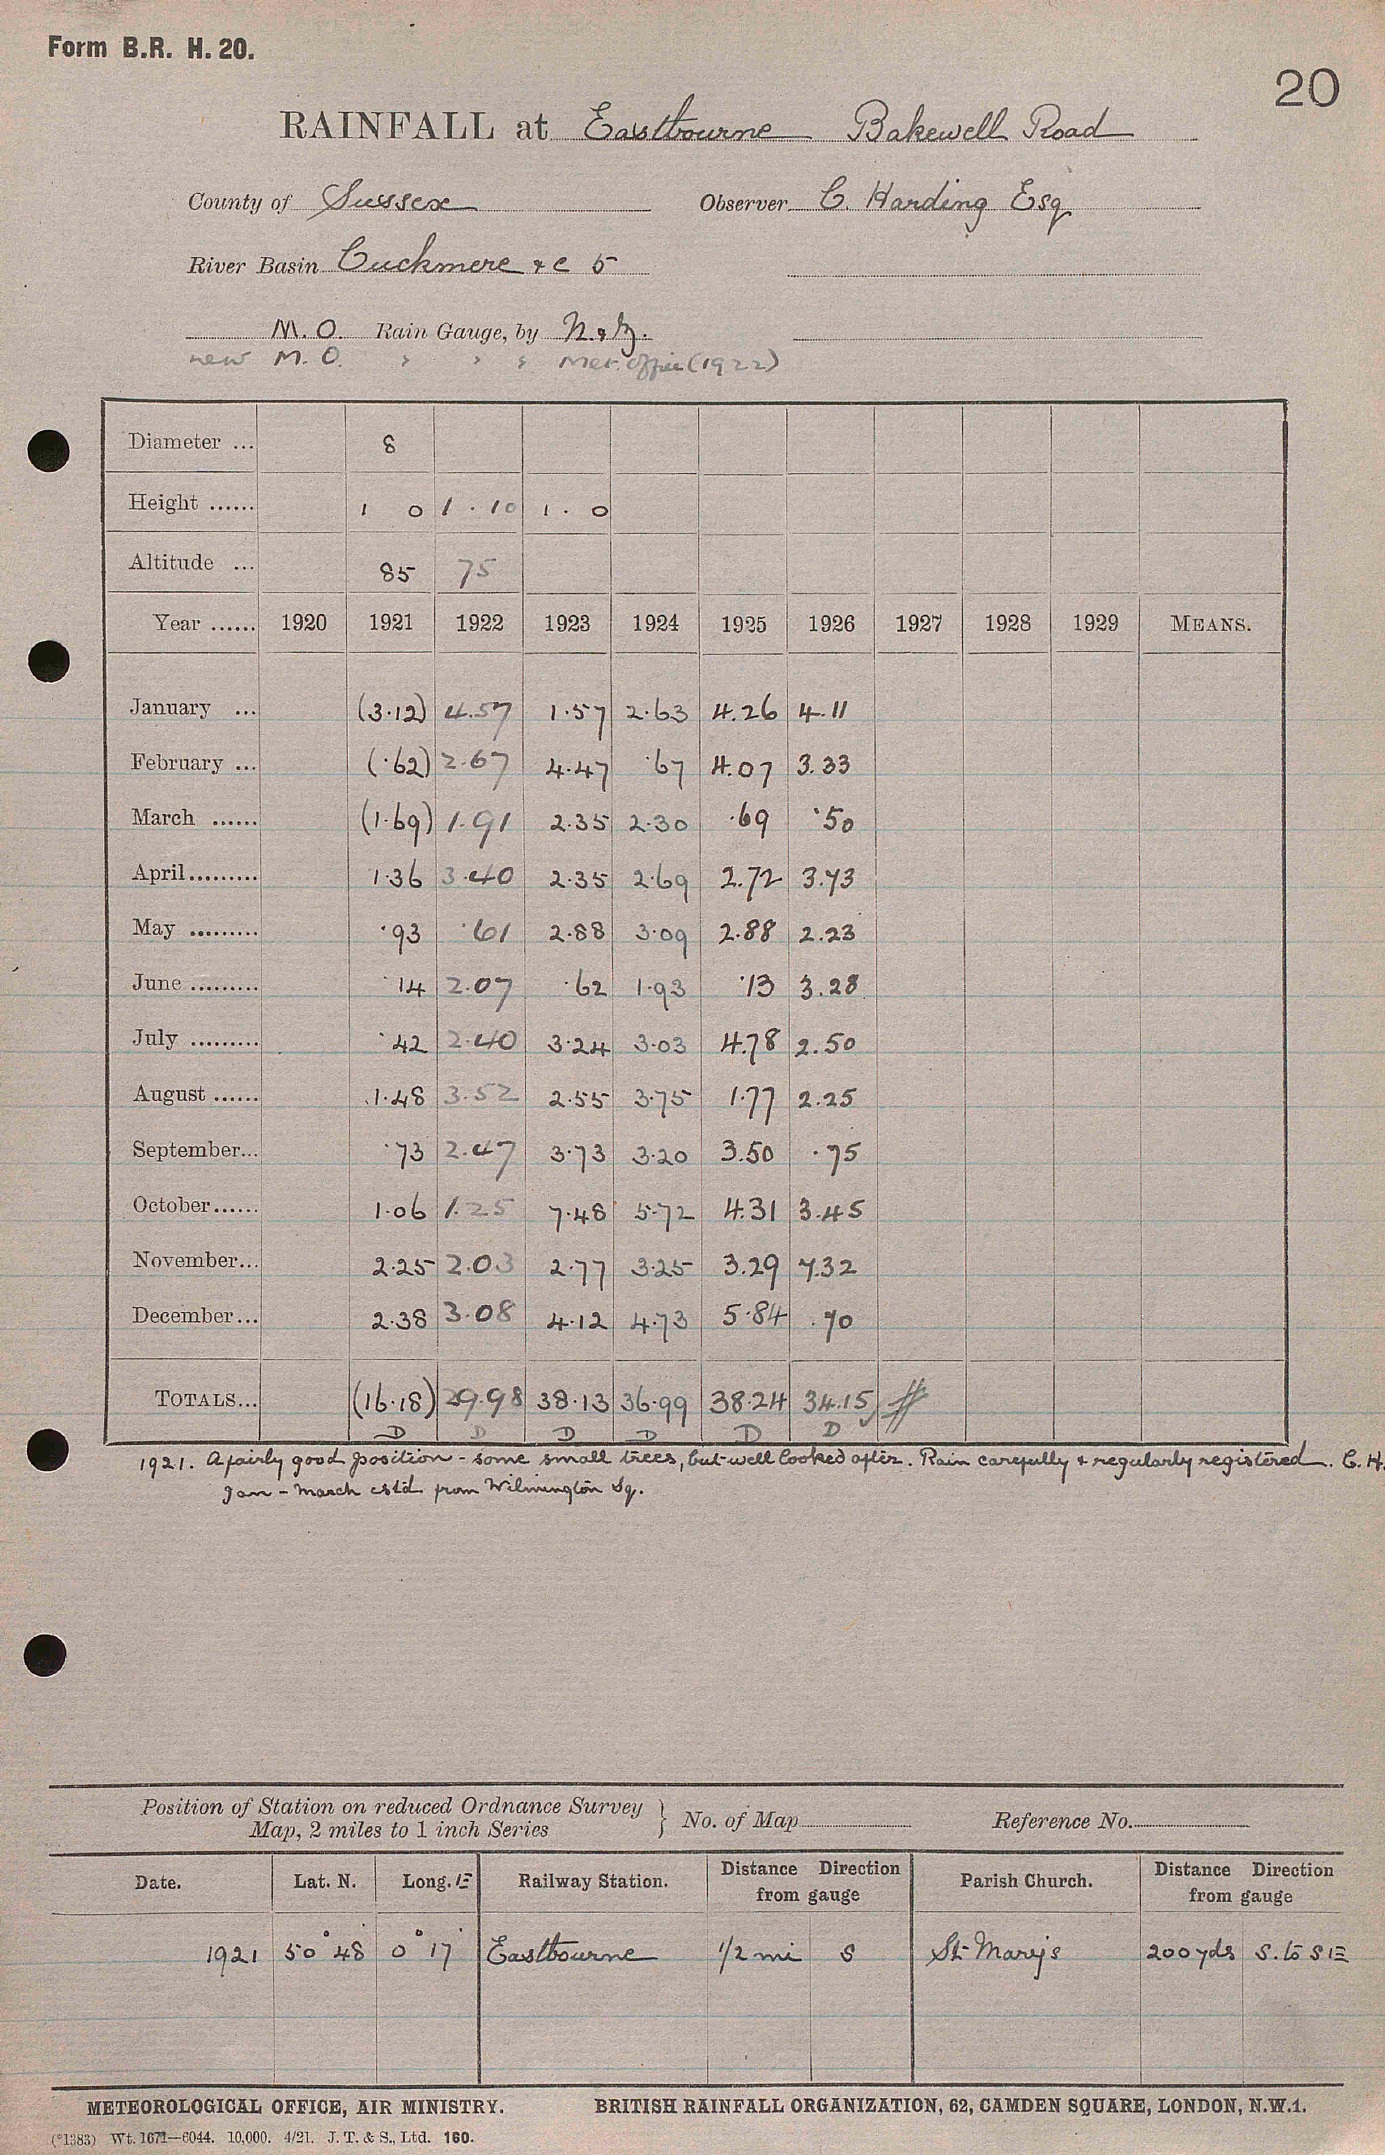 Form B.R. H. 20.
20
RAINFALL at Eastbourne Bakewell Road
County of Sussex Observer C. Harding Esq
River Basin Cuckmere &c 5
M.O. Rain Gauge, by N.&Z.
new M.O. " " " Met. Office (1922)
Diameter ... 8
Height ...... 1 0 1.10 1.0
Altitude ... 85 75
Year ...... 1920 1921 1922 1923 1924 1925 1926 1927 1928 1929 MEANS.
January ... (3.12) 4.57 1.57 2.63 4.26 4.11
February ... (.62) 2.67 4.47 .67 4.07 3.33
March ...... (1.69) 1.91 2.35 2.30 .69 .50
April ......... 1.36 3.40 2.35 2.69 2.72 3.73
May ......... .93 .61 2.88 3.09 2.88 2.23
June ......... .14 2.07 .62 1.93 .13 3.28
July ......... .42 2.40 3.24 3.03 4.78 2.50
August ...... 1.48 3.52 2.55 3.75 1.77 2.25
September... .73 2.47 3.73 3.20 3.50 .75
October...... 1.06 1.25 7.48 5.72 4.31 3.45
November... 2.25 2.03 2.77 3.25 3.29 7.32
December... 2.38 3.08 4.12 4.73 5.84 .70
TOTALS... (16.18) 29.98 38.13 36.99 38.24 34.15
D D D D D D
1921. A fairly good position - some small trees, but well looked after. Rain carefully & regularly registered. C.H.
Jan - March est'd from Wilmington Sq.
Position of Station on reduced Ordnance Survey
Map, 2 miles to 1 inch Series } No. of Map Reference No.
Date. Lat. N. Long. E Railway Station. Distance Direction from gauge Parish Church. Distance Direction from gauge
1921 50° 48' 0° 17' Eastbourne 1/2 mi S St Mary's 200 yds S. to SE
METEOROLOGICAL OFFICE, AIR MINISTRY. BRITISH RAINFALL ORGANIZATION, 62, CAMDEN SQUARE, LONDON, N.W.1.
(*1383) Wt. 1671—6044. 10,000. 4/21. J. T. & S., Ltd. 160.